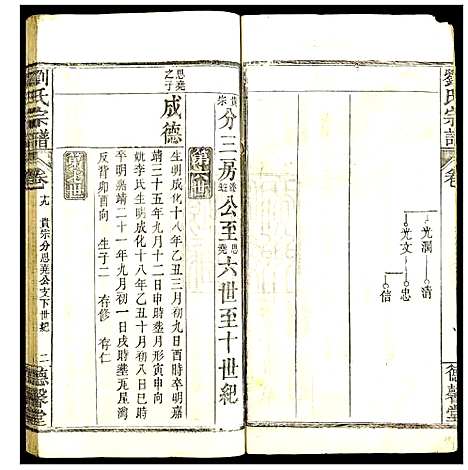 劉氏宗譜
卷
光潤 清
光文 忠
信
德馨堂
貴宗分三房 公至思堯六世至十世紀
第六世
思堯之子
成德
生明成化十八年乙丑三月初九日酉時卒明嘉
靖三十五年九月十二日時塟月形寅向
姚李氏生明成化十八年乙丑十月初八日辰時
卒明嘉靖二十一年九月初一日戌時塟
反背卯酉向 生子二 存修 存仁
劉氏宗譜
卷
貴宗分思堯公支下世紀
二
德馨堂